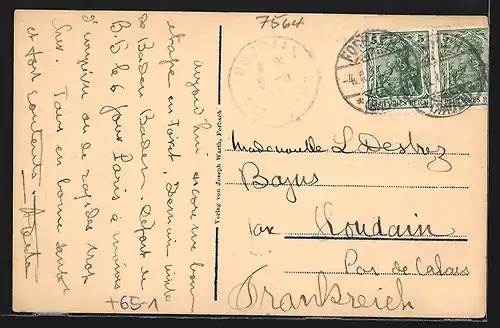 7564
aujourd'hui encore une bonne
étape en forêt. Demain visite
de Baden Baden. Départ de
B.B. le 6 pour Paris à moins
d'imprévu ou de rapides trop
Tous en bonne santé
et fort contents
+65-1
Verlag von Joseph Warth, Forbach
5 5
DEUTSCHES REICH
Mademoiselle L. Destrez
Bajus
par Houdain
Pas de Calais
Frankreich